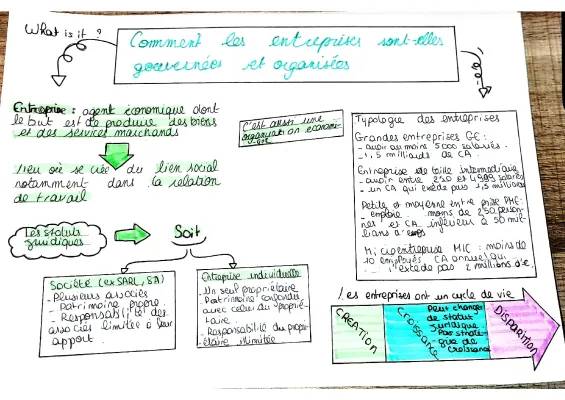 What is it ?
Comment les entreprises sont-elles
gouvernées et organisées
Entreprise : agent économique dont
le but est de produire des biens
et des services marchands
C'est aussi une
organisation économi-
que
lieu où se crée du lien social
notamment dans la relation
de travail
Les statuts
juridiques
Soit
Société (ex SARL, SA)
- Plusieurs associés
- Patrimoine propre
- Responsabilité des
associés limitée à leur
apport.
Entreprise individuelle
- Un seul propriétaire
- Patrimoine confondu
avec celui du proprié-
taire
- Responsabilité du propri-
étaire illimitée
Typologie des entreprises
Grandes entreprises GE :
- avoir au moins 5000 salariés.
- 1,5 milliards de CA
Entreprise de taille intermédiaire
- avoir entre 250 et 4999 salariés
- un CA qui excède pas 1,5 milliards
Petite et moyenne entreprise PME :
- emploie moins de 250 person-
nes et CA inférieur à 50 mil-
lions d'
Microentreprise MIC : moins de
10 employés CA annuel qui
n'excède pas 2 millions d'€
Les entreprises ont un cycle de vie
CREATION
Croissance
Peut changer
de statut
juridique
- Pas
de
croissance
DISPARITION